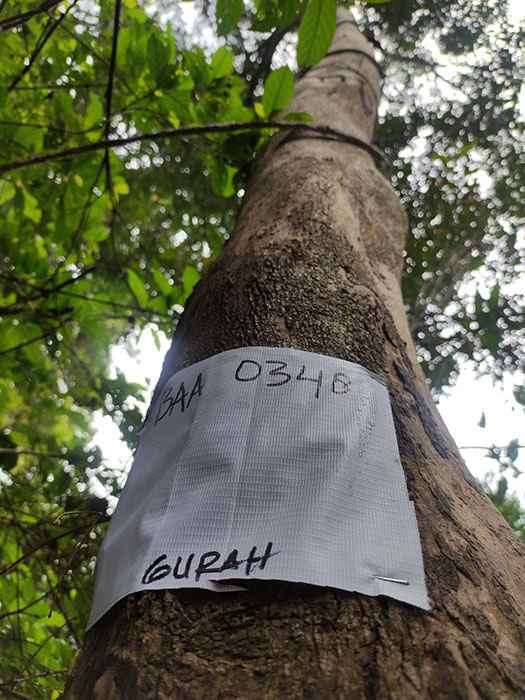 BAA 0348
GURAH